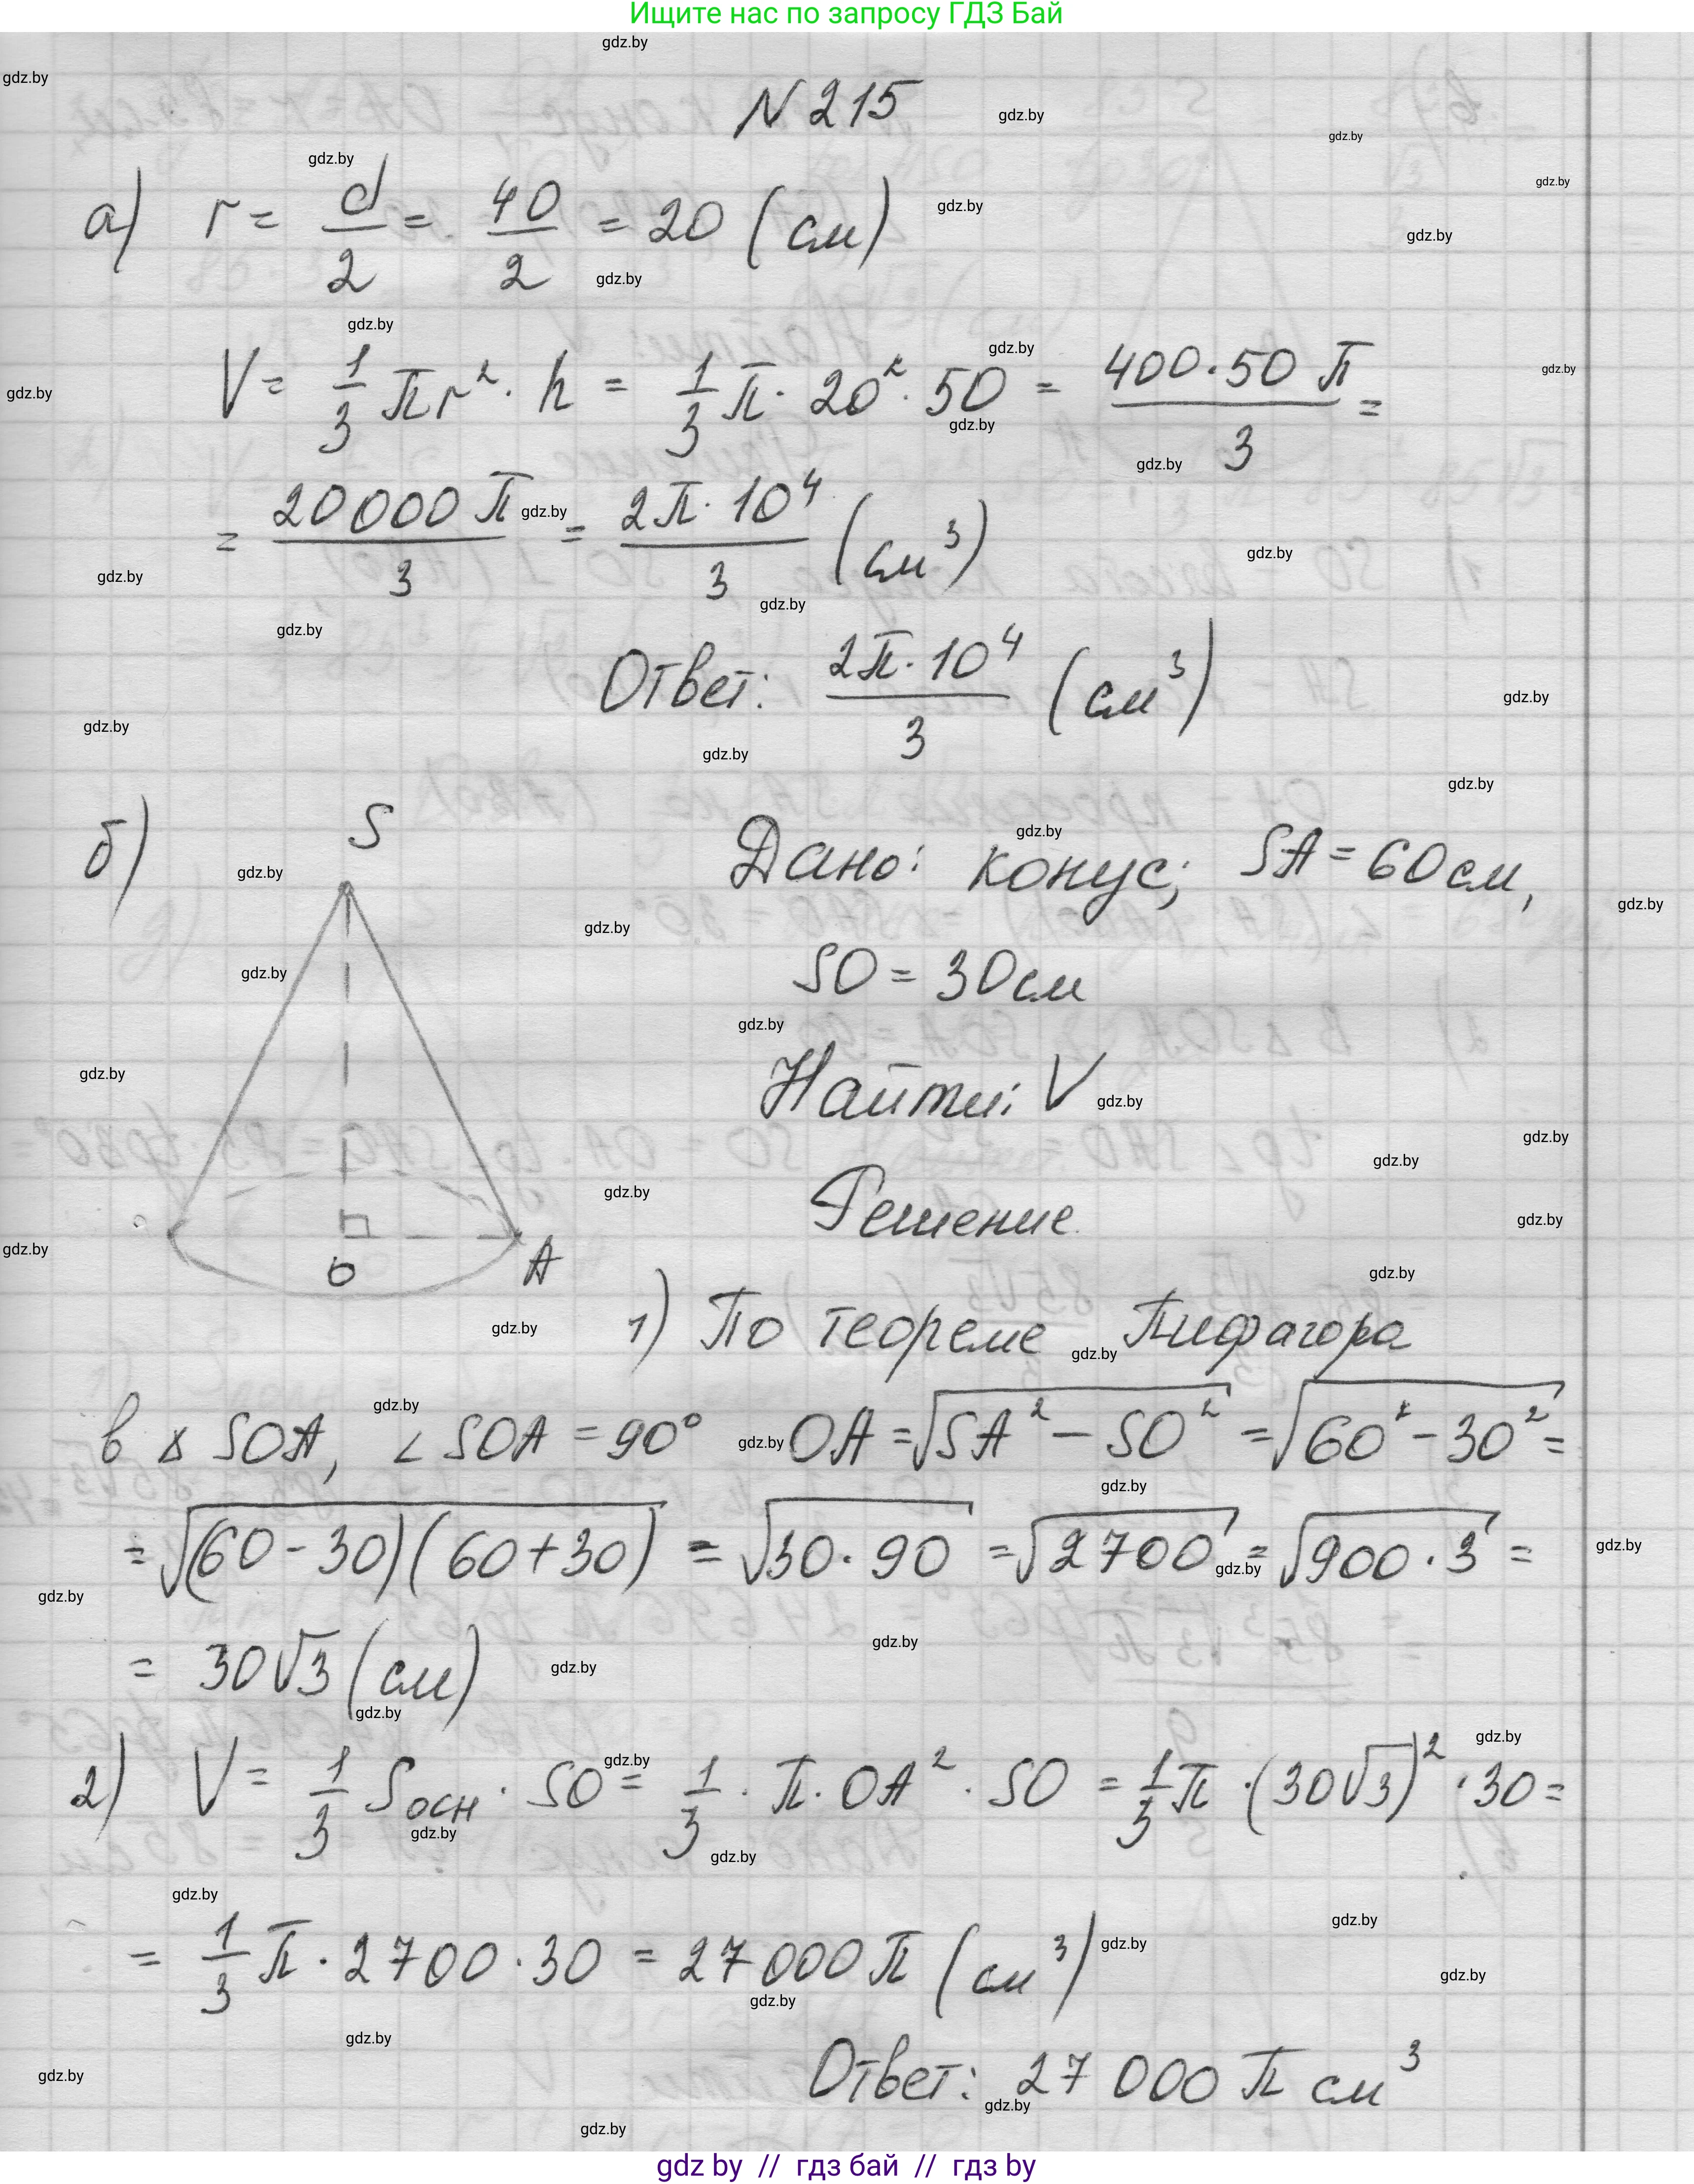 Ищите нас по запросу ГДЗ Бай
N 215
а) r = d/2 = 40/2 = 20 (см)
V = 1/3 πr² · h = 1/3 π · 20² · 50 = 400·50 π/3 =
= 20000 π/3 = 2π · 10⁴/3 (см³)
Ответ: 2π · 10⁴/3 (см³)
б)
S
O
A
Дано: конус; SA = 60 см,
SO = 30 см
Найти: V
Решение
1) По теореме Пифагора
в △ SOA, ∠ SOA = 90° OA = √(SA² − SO²) = √(60² − 30²) =
= √((60 − 30)(60 + 30)) = √(30 · 90) = √2700 = √(900 · 3) =
= 30√3 (см)
2) V = 1/3 Sосн · SO = 1/3 · π · OA² · SO = 1/3 π · (30√3)² · 30 =
= 1/3 π · 2700 · 30 = 27000 π (см³)
Ответ: 27 000 π см³
gdz by // гдз бай // гдз by